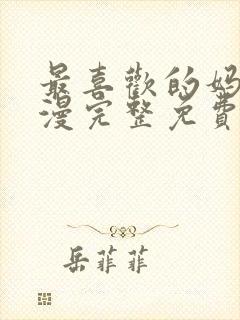 最喜歡的妈
漫完整免費
岳菲菲